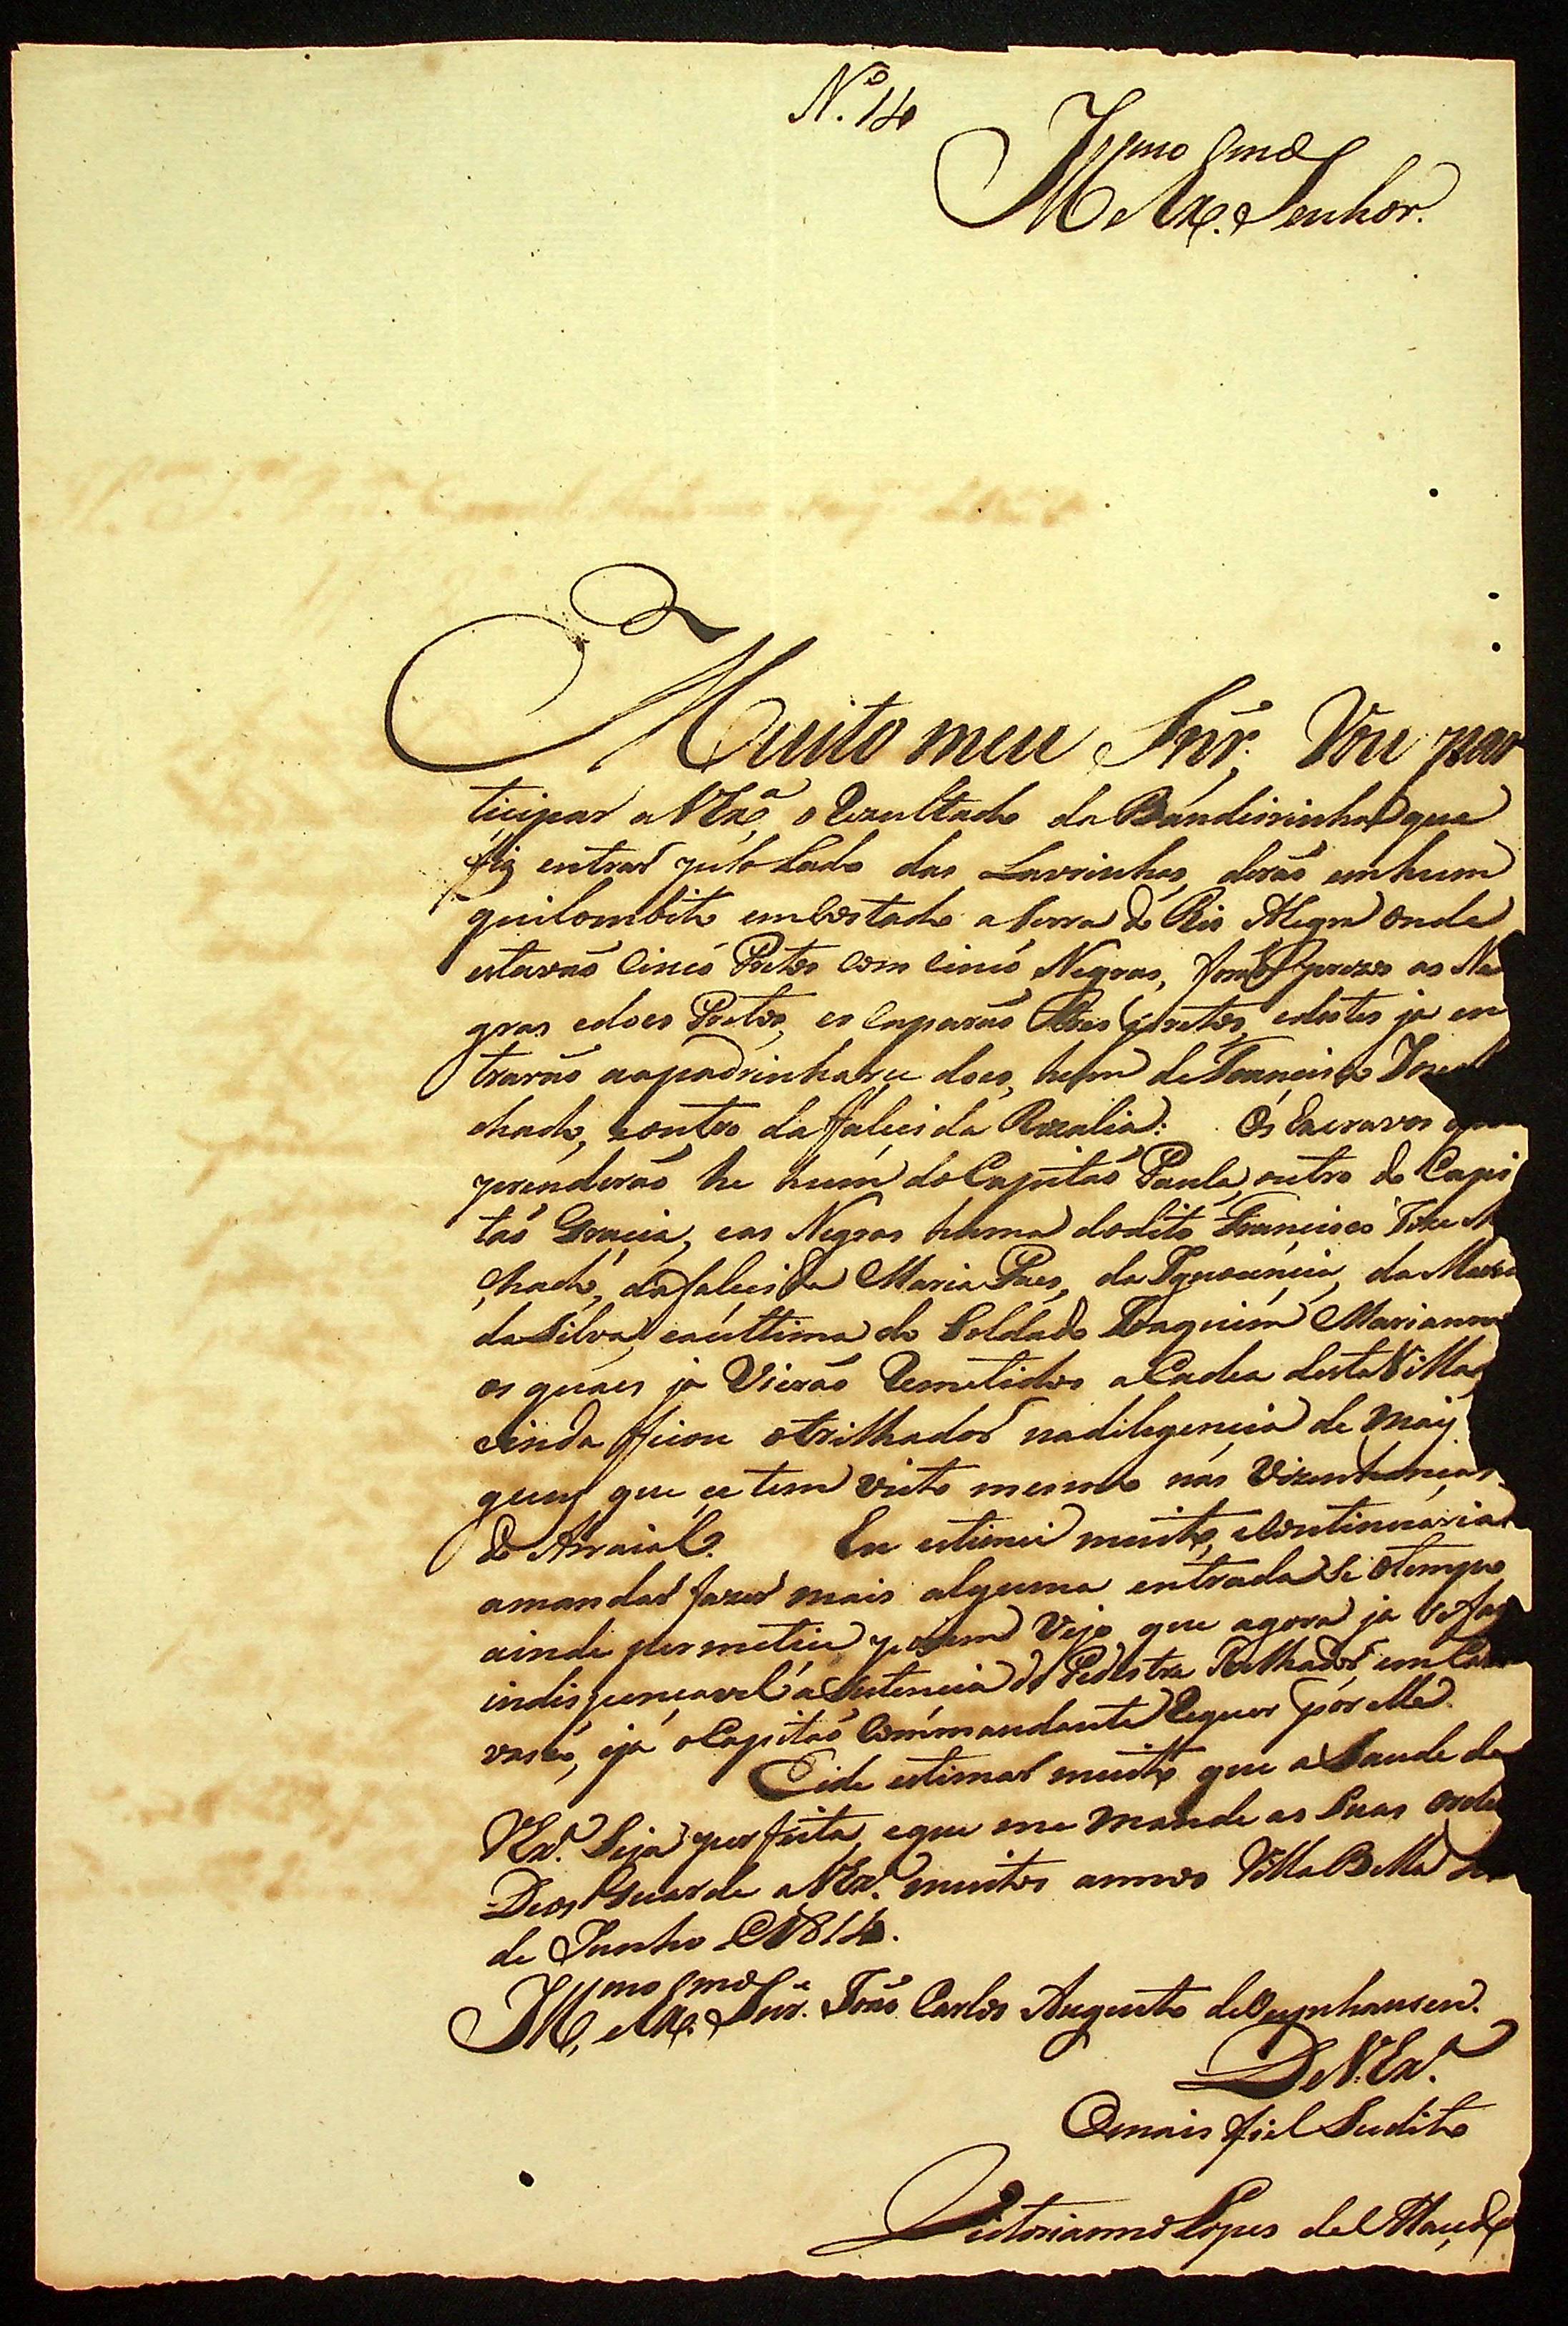 N.º 14
Ill.mo e Ex.mo Senhor.
Muito meu Snr. Vou par
ticipar a V Ex.ª o Rezultado da Bandeirinha que
fiz entrar pelo Lado das Lavrinhas, derão em hum
quilombito emcostado a Serra do Rio Alegre onde
estavão Cinco Pretos com cinco Negras, forão prezos as Ne
gras e dois Pretos, escaparão tres pretos, e destes ja en
trarão a apadrinharse dois, hum de Francisco Joze
chado, e outro da falecida Rozalia: Os Escravos que
prenderão he hum do Capitão Paula, outro do Capi
tão Gracia, e as Negras huma do dito Francisco Joze M
chado, da falecida Maria Paes, da Ignocencia, da Maria
da Silva, e a ultima do Soldado Joaquim Marianno
os quaes ja Vierão Remetidos a Cadea desta Villa,
ainda ficou o trilhador na diligencia de mais
quem que se tem visto mesmo nas Vizinhanças
do Arraial. Eu estimei muito, e continuaria
a mandar fazer mais alguma entrada se o tempo
ainda permetice porem Vejo que agora ja se faz
indispençavel a asistencia do Pedestre Trilhador em Caza
vasco, e ja o Capitão Commandante Requer por elle.
Eide estimar muito que a Saude de
V Ex.ª Seja perfeita, e que me mande as Suas orde
Deos Guarde a V Ex.ª muitos annos Villa Bella
de Junho de 1814.
Ill.mo e Ex.mo Snr. João Carlos Augusto de Oeynhausen.
De V. Ex.ª
O mais fiel Sudito
Victorianno Lopes de Macedo